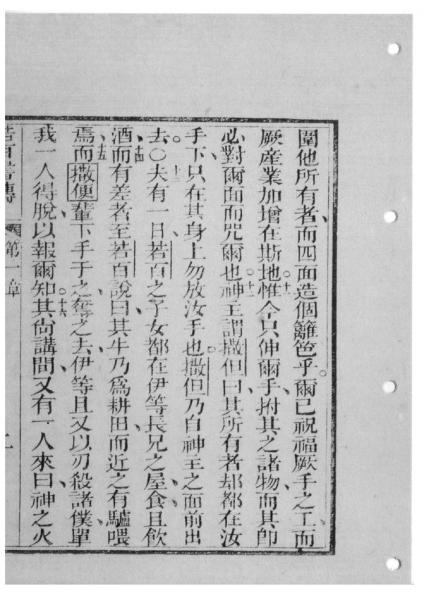 圍他所有者而四面造個籬笆乎。爾已祝福厥手之工而
厥產業加增在斯地。十一惟今只伸爾手拊其之諸物而其卽
必對爾面而咒爾也。十二神主謂撒但曰其所有者却都在汝
手下、只在其身上勿放汝手也。撒但乃自神主之面前出
去。○十三夫有一日若百之子女都在伊等長兄之屋食且飲
酒、十四而有差者至若百說曰其牛乃爲耕田而近之有驢喂
焉、十五而撒便輩下手于之奪之去伊等且又以刃殺諸僕、單
我一人得脫以報爾知。十六其尙講間又有一人來曰神之火
若百書傳 第一章